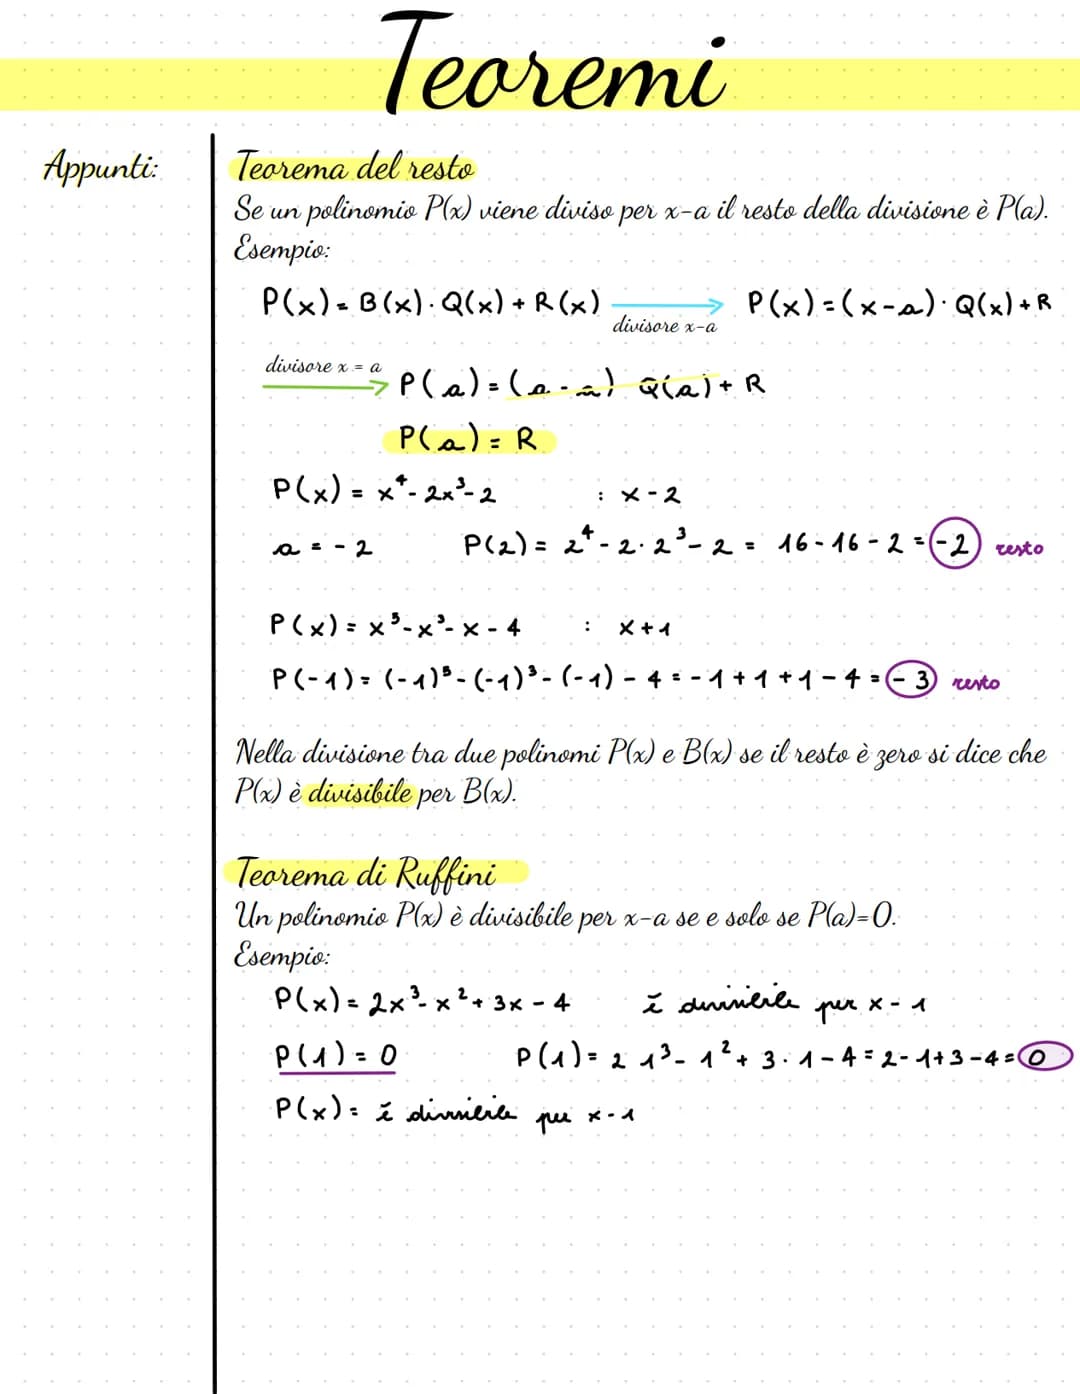 Teoremi
Appunti:
Teorema del resto
Se un polinomio P(x) viene diviso per x-a il resto della divisione è P(a).
Esempio:
P(x) = B(x) · Q(x) + R(x) divisore x-a P(x) = (x-a) · Q(x) + R
divisore x = a P(a) = (a-a) Q(a) + R
P(a) = R
P(x) = x⁴ - 2x³ - 2 : x - 2
a = - 2 P(2) = 2⁴ - 2 · 2³ - 2 = 16 - 16 - 2 = -2 resto
P(x) = x⁵ - x³ - x - 4 : x + 1
P(-1) = (-1)⁵ - (-1)³ - (-1) - 4 = -1 + 1 + 1 - 4 = -3 resto
Nella divisione tra due polinomi P(x) e B(x) se il resto è zero si dice che
P(x) è divisibile per B(x).
Teorema di Ruffini
Un polinomio P(x) è divisibile per x-a se e solo se P(a)=0.
Esempio:
P(x) = 2x³ - x² + 3x - 4 è divisibile per x - 1
P(1) = 0 P(1) = 2 1³ - 1² + 3 · 1 - 4 = 2 - 1 + 3 - 4 = 0
P(x) = è divisibile per x - 1